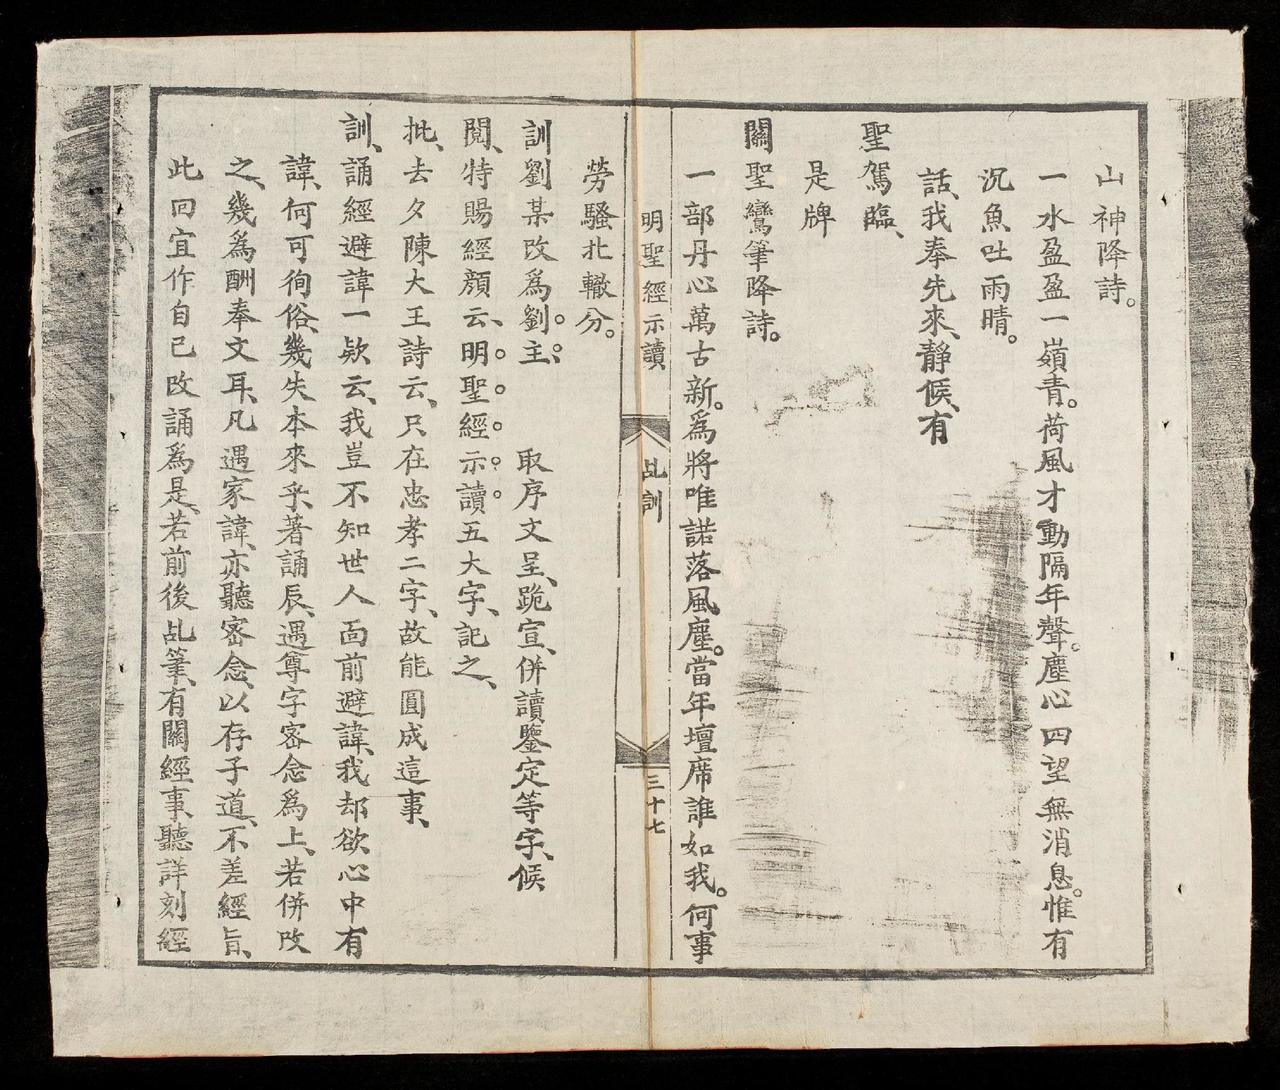 山神降詩。
一水盈盈一嶺青。荷風才動隔年聲。塵心四望無消息。惟有
沉魚吐雨晴。
話、我奉先來、靜候、有
聖駕臨、
是牌
關聖鸞筆降詩。
一部丹心萬古新。爲將唯諾落風塵。當年壇席誰如我。何事
明聖經示讀
乩訓
三十七
勞騷北轍分。
訓劉某改爲劉。主。、取序文呈、跪宣、併讀鑒定等字、候
閱、特賜經顏云、明。聖。經。示。讀。五大字、記之、
批、去夕陳大王詩云、只在忠孝二字、故能圓成這事、
訓、誦經避諱一欵云、我豈不知世人面前避諱、我却欲心中有
諱、何可徇俗、幾失本來乎、著誦辰、遇尊字密念爲上、若併改
之、幾爲酬奉文耳、凡遇家諱、亦聽密念、以存子道、不差經旨、
此回宜作自己改誦爲是、若前後乩筆、有關經事、聽詳刻經